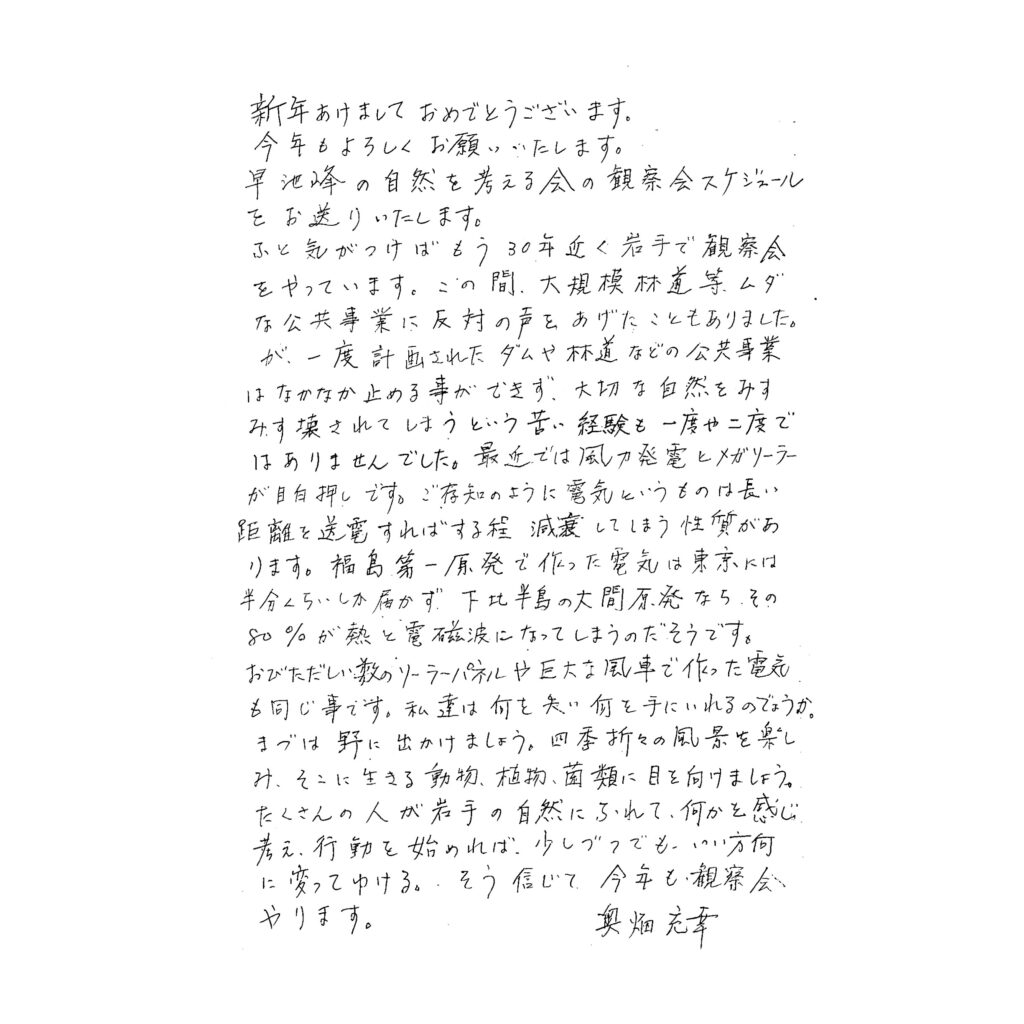 新年あけまして おめでとうございます。
今年もよろしく お願いいたします。
早池峰の自然を考える会の観察会スケジュール
をお送りいたします。
ふと気がつけばもう30年近く岩手で観察会
をやっています。この間、大規模林道等、ムダ
な公共事業に反対の声を あげたこともありました。
が、一度計画されたダムや林道などの公共事業
はなかなか止める事ができず、大切な自然をみす
みす壊されてしまうという苦い経験も一度や二度で
はありませんでした。最近では風力発電とメガソーラー
が目白押しです。ご存知のように電気というものは長い
距離を送電すればする程 減衰してしまう性質があ
ります。福島第一原発で作った電気は東京には
半分くらいしか届かず 下北半島の大間原発なら、その
80%が熱と電磁波になってしまうのだそうです。
おびただしい数のソーラーパネルや巨大な風車で作った電気
も同じ事です。私達は何を失い何を手にいれるのでょうか。
まづは野に出かけましょう。四季折々の風景を楽し
み、そこに生きる動物、植物、菌類に目を向けましょう。
たくさんの人が岩手の自然にふれて、何かを感じ
考え、行動を始めれば、少しづつでも、いい方何
に変ってゆける。そう信じて 今年も観察会
やります。 奥畑充幸